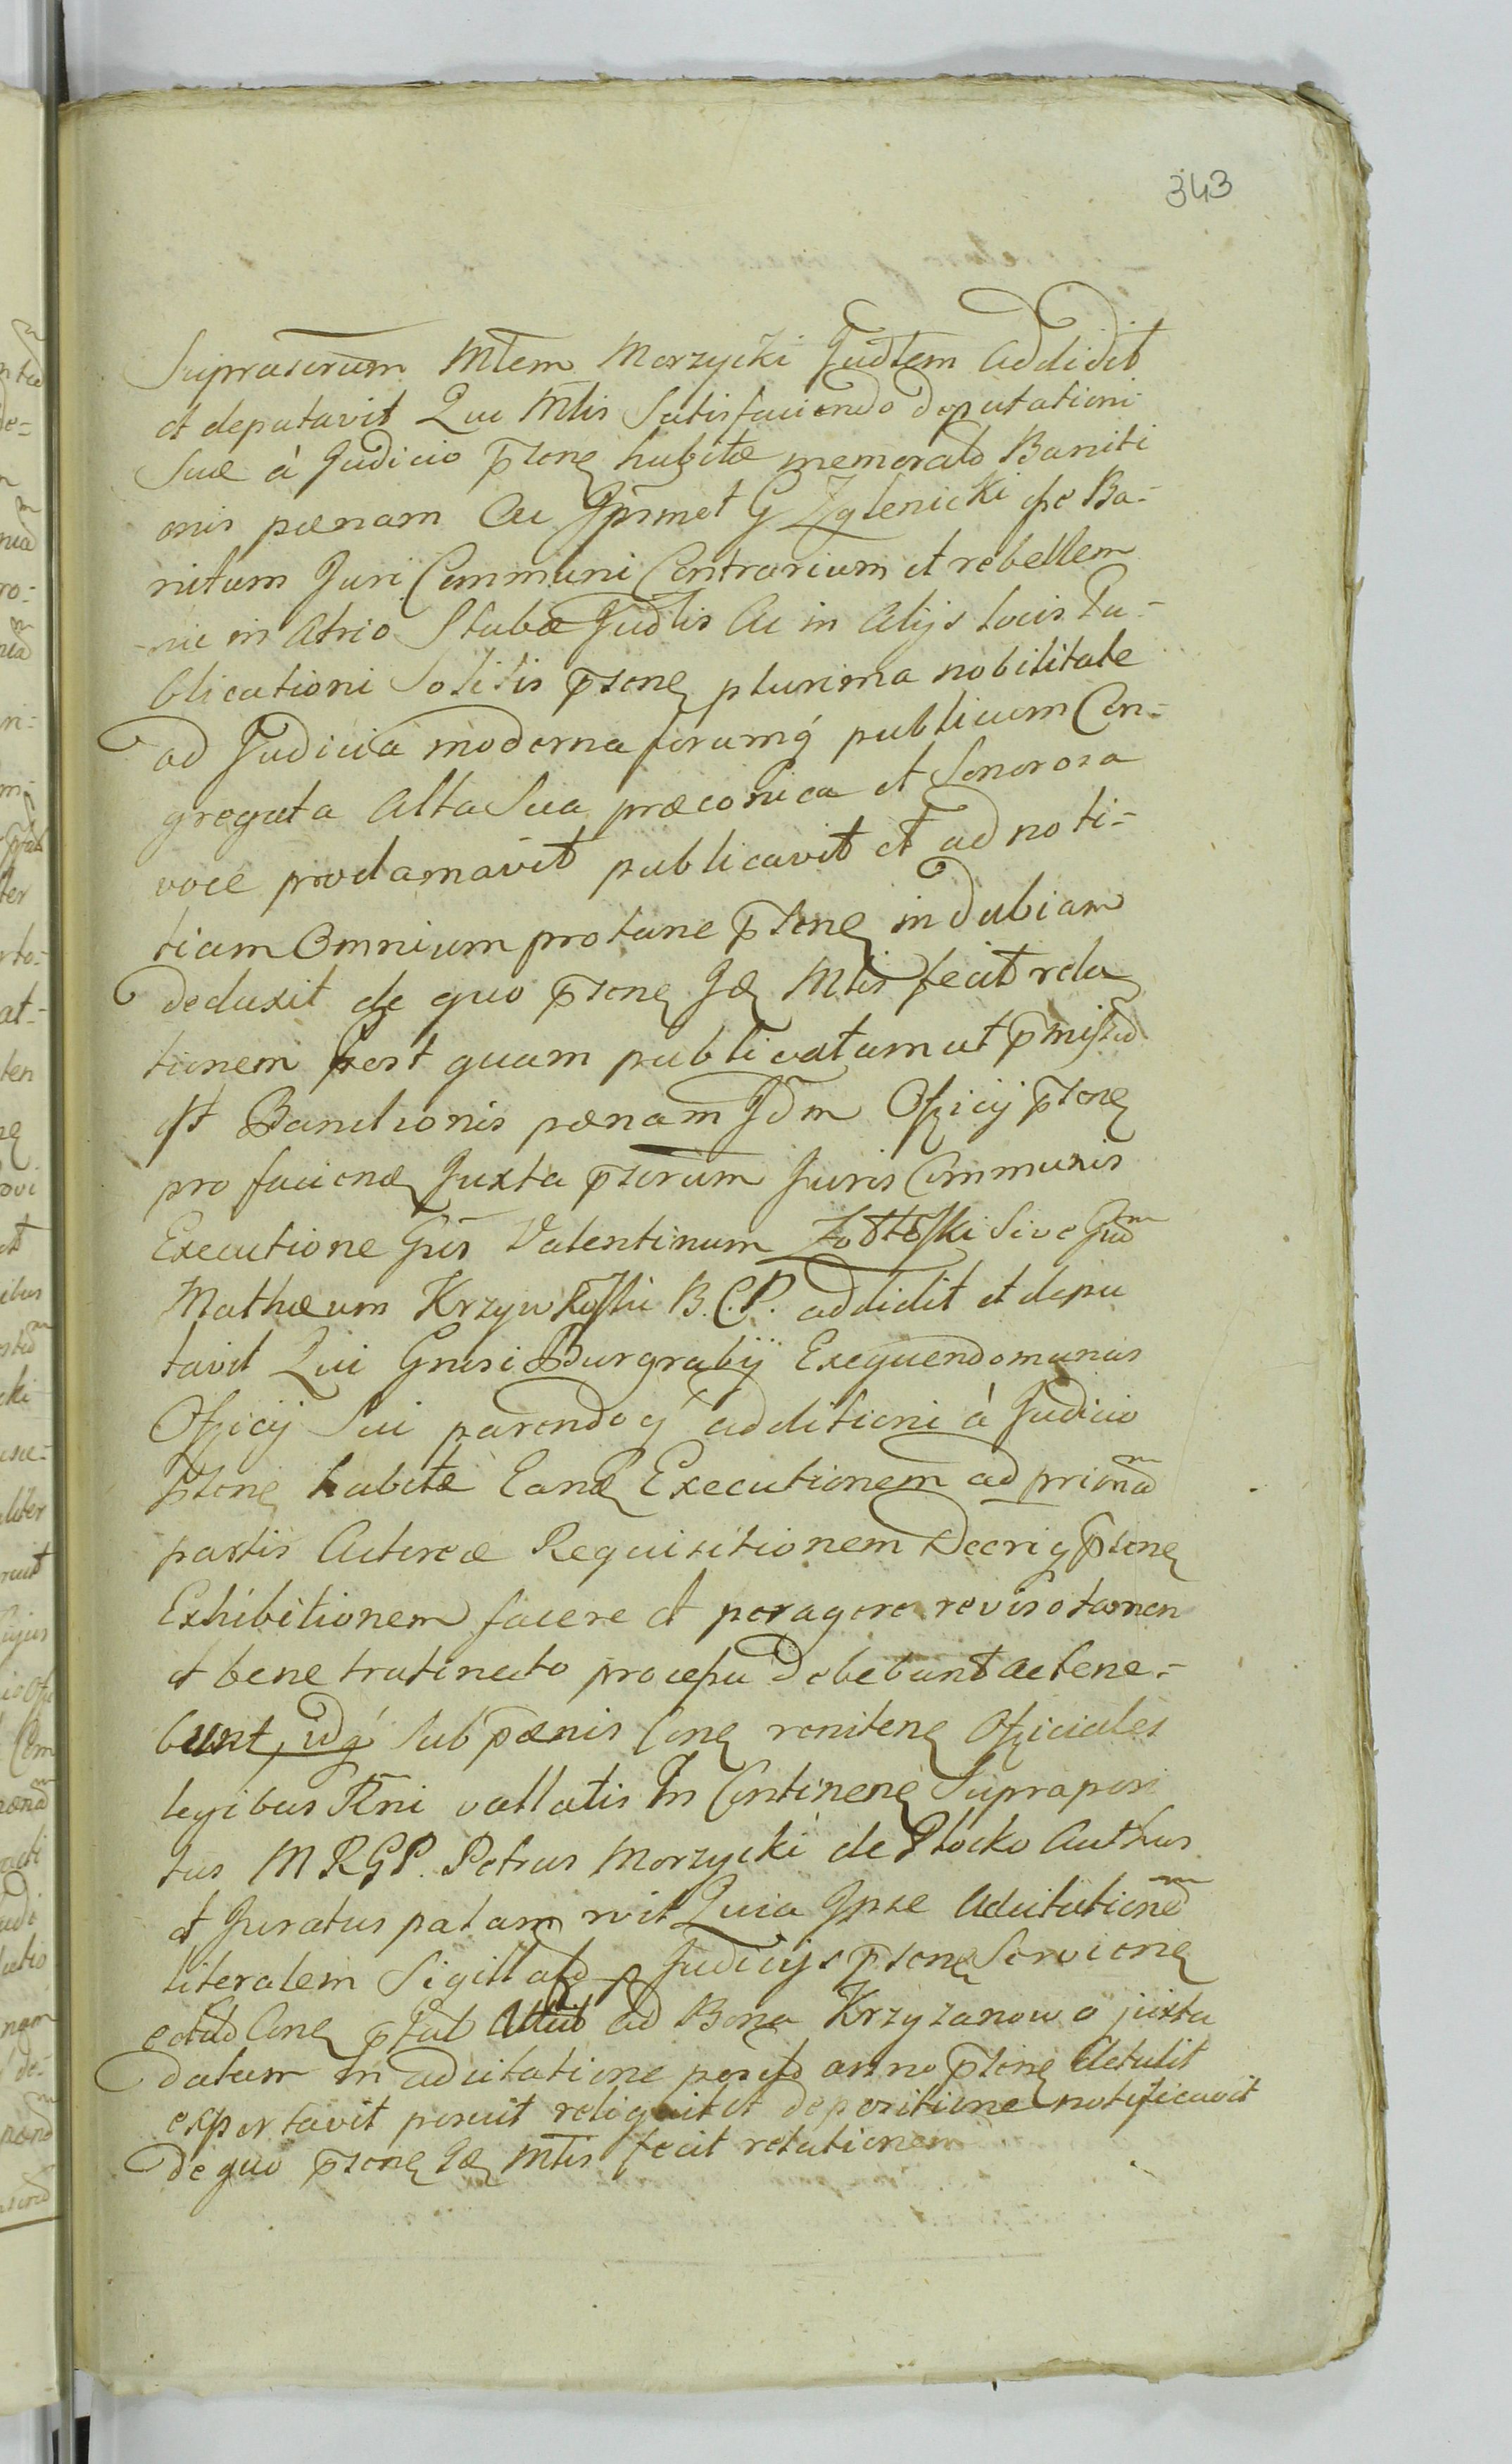 343
Suprascrium Mlem Morzycki Judlem addidit
et deputavit Qui Mlis Satisfaciendo deputationi
Suæ à Judicio pscne habitæ memorato Baniti
onis pænam Ac Ipsmet G Zglenicki fse Ba-
nitum Juri Communi Contrarium et rebellem
-nie in Atrio Stubæ Judlis Ac in Alijs locis Pu-
blicationi Solitis pscne plurima nobilitate
ad Judicia moderna forumq́ publicum Con-
gregata Alta Sua præconica et Sonorosa
voce proclamavit publicavit et ad noti-
tiam Omnium protunc pscne indubiam
deduxit de quo pscne Jdę Mlis fecit rela
tionem Post quam publicatam ut pmissũ
est Banitionis pænam Jdm Officij pscne
pro faciendę Juxta pscrium Juris Communis
Executione Gũs Valentinum Zołtoski Sive Gnũm
Mathæum Krzywkoski B.C.P. addidit et depu
tavit Qui Gnusi Burgrabij Exequendo munus
Officij Sui parendoq́ additioni à Judicio
pscne habitæ Eandę Executionem ad primãm
partis Actoreæ Requisitionem Decriq́ pscne
Exhibitionem facere et peragere reviso tamen
et bene trutinato processu debebunt ac tene-
bunt, idq́ Sub pænis Conę renitenę Officiales
legibus Rni vallatis In Continenę Supraposi
tus MRGP. Petrus Morzycki de Płocko Authus
et Juratus palam rvit Quia Ipse Adcitationẽm
literalem Sigillatã p Judicijs pscne Servienę
ad Bona Krzyzanowo juxta
datum in adcitatione posit anno pscne detulit
exportavit posuit reliquit et depositione notificavit
de quo pscne Jdę Mtis fecit relationem